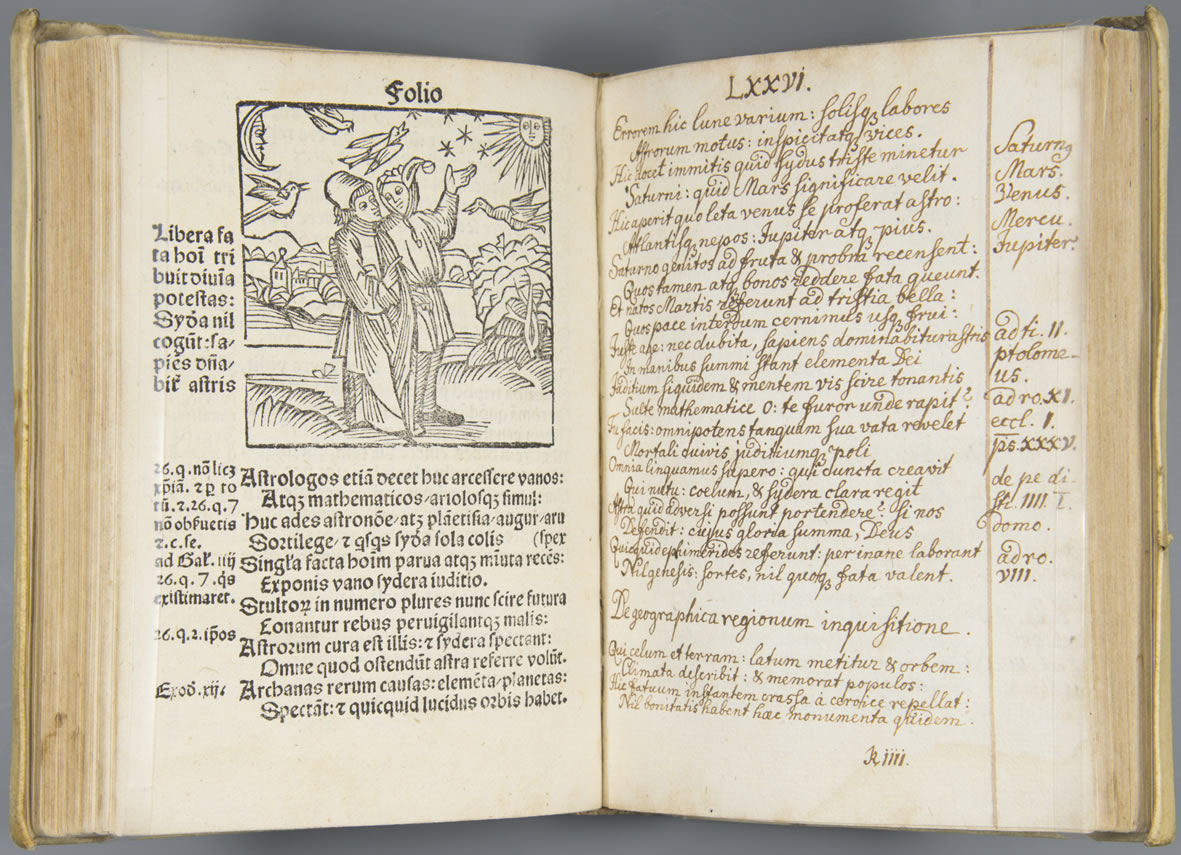 Folio
Libera fa
ta hoı̄ tri
buit diuı̄a
potestas:
Syđa nil
cogūt: sa-
piēs dn̄a-
bit͛ astris
26. q. nō licꝫ
xp̄iā. ⁊ ꝑ to
tū. ⁊. 26. q. 7
nō obſuetis
⁊. c. ſe.
ad Gal. iiij
26. q. 7. q̄s
existimaret.
26. q. 2. ip̄os
Exod. xij.
Astrologos etiā decet huc arcessere vanos:
Atqꝫ mathematicos/ariolosqꝫ simul:
Huc ades astronōe/atqꝫ plāetista/augur/aru
Sortilege/ ⁊ qſqs syđa sola colis (spex
Singl̕a facta hoīm parua atqꝫ mīuta recēs:
Exponis vano sydera iuditio.
Stultoꝝ in numero plures nunc scire futura
Conantur rebus peruigilantqꝫ malis:
Astrorum cura est illis: ⁊ sydera spectant:
Omne quod ostendūt astra referre volūt.
Archanas rerum causas: elemēta/planetas:
Spectāt: ⁊ quicquid lucidus orbis habet.
LXXVI.
Errorem hic lune varium: solisqꝫ labores
Astrorum motus: inspicit atqꝫ vices.
Hic docet immitis quid sydus triste minetur
Saturni: quid Mars significare velit.
Hic aperit quo leta venus se proferat astro:
Atlantisqꝫ nepos: Jupiter atqꝫ pius.
Saturno genitos ad fruta & probra recensent:
Quos tamen atqꝫ bonos reddere fata queunt.
Et natos Martis referunt ad tristia bella:
Quos pace interdum cernimus usqꝫ frui:
Juste age: nec dubita, sapiens dominabitur astris
In manibus summi stant elementa Dei
Juditium siquidem & mentem vis scire tonantis
Sulte mathematice o: te furor unde rapit?
Tu facis: omnipotens tanquam sua vata revelet
Mortali duivis juditiumqꝫ poli
Omnia linquamus supero: qui cuncta creavit
Qui nutu: coelum, & sydera clara regit
Astra quid adversi possunt portendere? si nos
Defendit: cujus gloria summa, Deus
Quicquid ephimerides referunt: per inane laborant
Nil genesis: sortes, nil quoqꝫ fata valent.
De geographica regionum inquisitione.
Qui celum et terram: latum metitur & orbem:
Climata describit: & memorat populos:
Hic fatuum instantem crassa à cervice repellat:
Nil bonitatis habent hæc monumenta quidem.
K iiii.
Saturnꝰ
Mars.
Venus.
Mercu.
Jupiter
ad ti. II.
ptolome-
us.
ad ro. XI.
eccl. I.
ps. XXXV.
de pe di-
st. IIII I.
domo.
ad ro.
VIII.